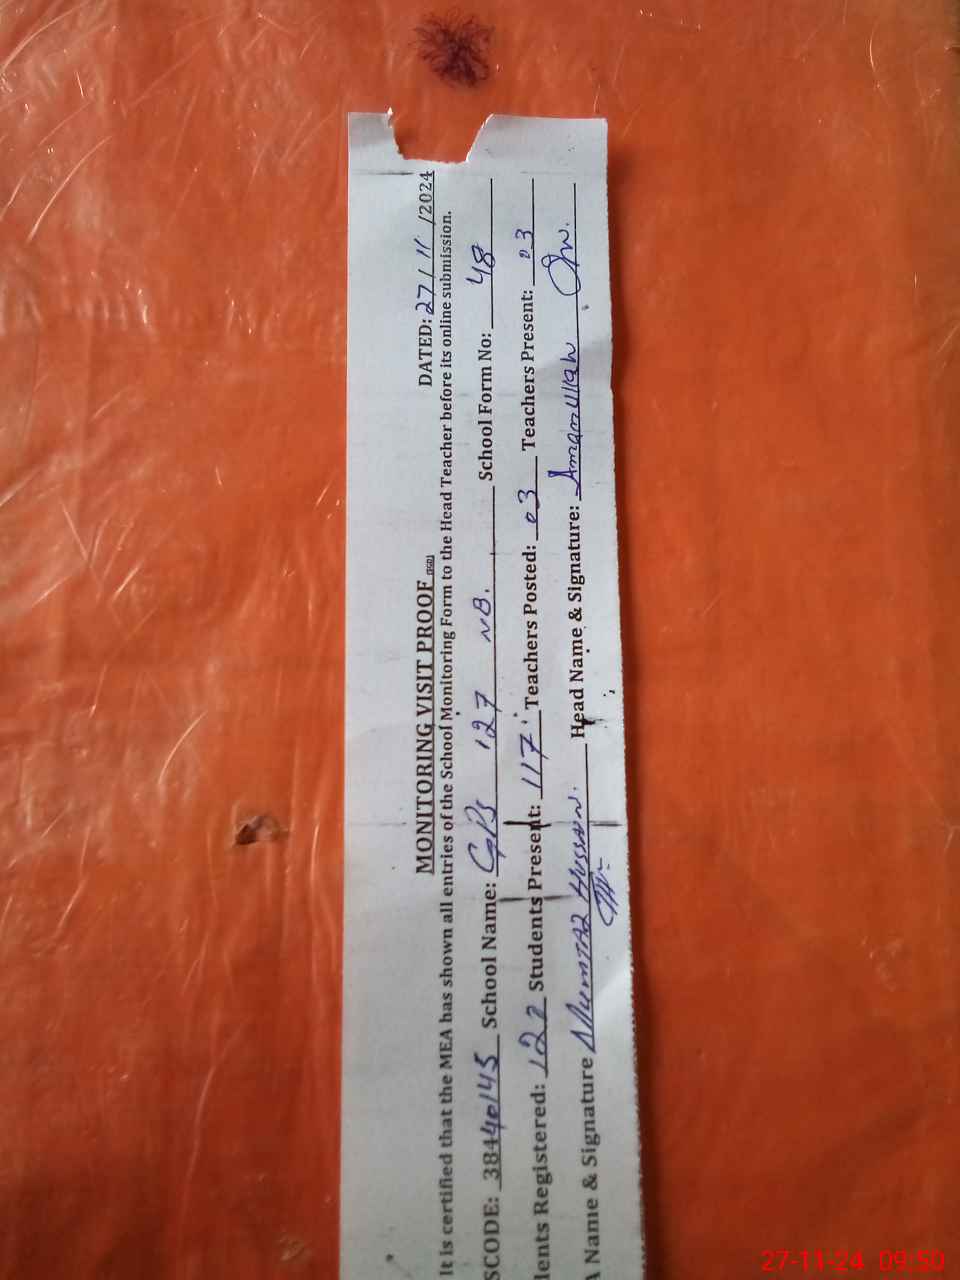 MONITORING VISIT PROOF (SGD) DATED: 27/11/2024
It is certified that the MEA has shown all entries of the School Monitoring Form to the Head Teacher before its online submission.
SCODE: 38440145 School Name: GPS 127 NB. School Form No: 48
lents Registered: 122 Students Present: 117 Teachers Posted: 03 Teachers Present: 03
A Name & Signature Mumtaz Hussain. Head Name & Signature: Amanullah
27-11-24 09:50